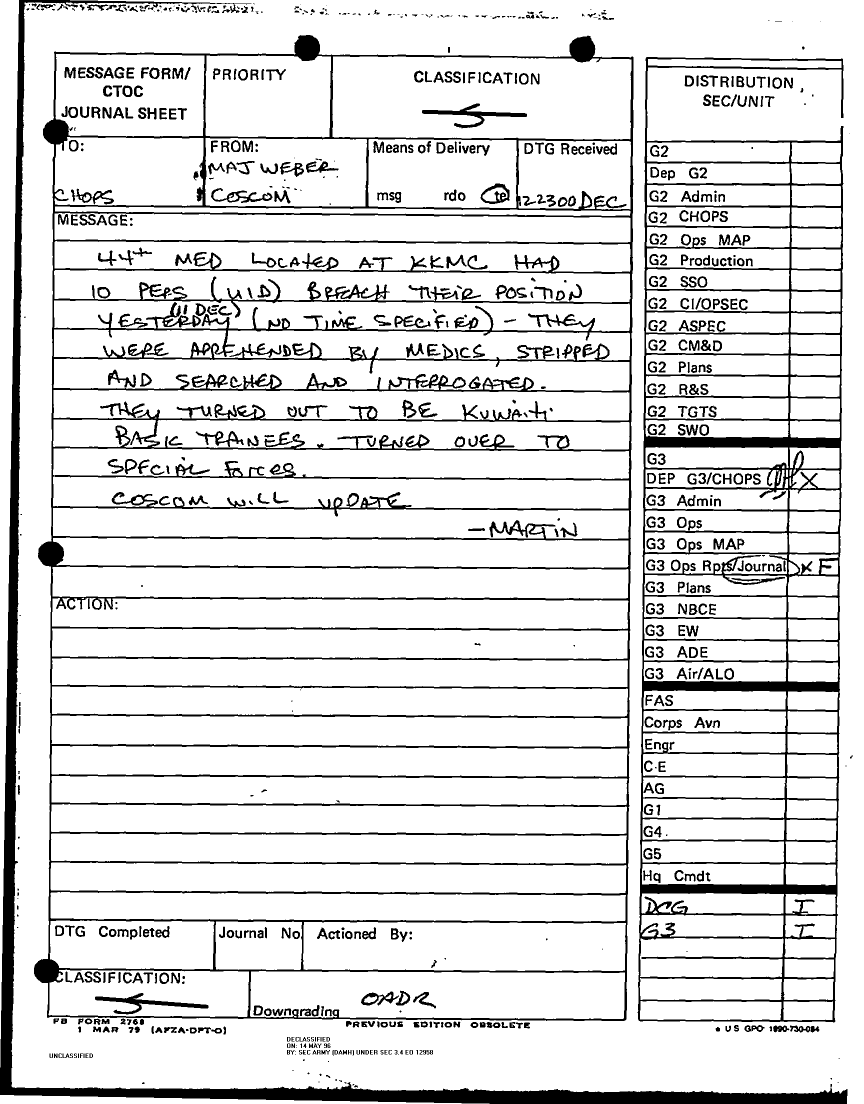 MESSAGE FORM/
CTOC
JOURNAL SHEET
PRIORITY
CLASSIFICATION
S
TO:
CHOPS
FROM:
MAJ WEBER
COSCOM
Means of Delivery
msg rdo tel
DTG Received
122300 DEC
MESSAGE:
44th MED LOCATED AT KKMC HAD
10 PERS (UID) BREACH THEIR POSITION
(11 DEC)
YESTERDAY (NO TIME SPECIFIED) - THEY
WERE APPREHENDED BY MEDICS, STRIPPED
AND SEARCHED AND INTERROGATED.
THEY TURNED OUT TO BE KUWAITI
BASIC TRAINEES. TURNED OVER TO
SPECIAL FORCES.
COSCOM WILL UPDATE
-MARTIN
ACTION:
DTG Completed
Journal No
Actioned By:
CLASSIFICATION:
S
Downgrading OADR
FB FORM 2768
1 MAR 79 (AFZA-DPT-O)
PREVIOUS EDITION OBSOLETE
DISTRIBUTION
SEC/UNIT
G2
Dep G2
G2 Admin
G2 CHOPS
G2 Ops MAP
G2 Production
G2 SSO
G2 CI/OPSEC
G2 ASPEC
G2 CM&D
G2 Plans
G2 R&S
G2 TGTS
G2 SWO
G3
DEP G3/CHOPS X
G3 Admin
G3 Ops
G3 Ops MAP
G3 Ops Rpts/Journal X F
G3 Plans
G3 NBCE
G3 EW
G3 ADE
G3 Air/ALO
FAS
Corps Avn
Engr
C-E
AG
G1
G4
G5
Hq Cmdt
DCG I
G3 I
U S GPO 1990-730-084
UNCLASSIFIED
DECLASSIFIED
ON: 14 MAY 96
BY: SEC ARMY (DAMH) UNDER SEC 3.4 EO 12958